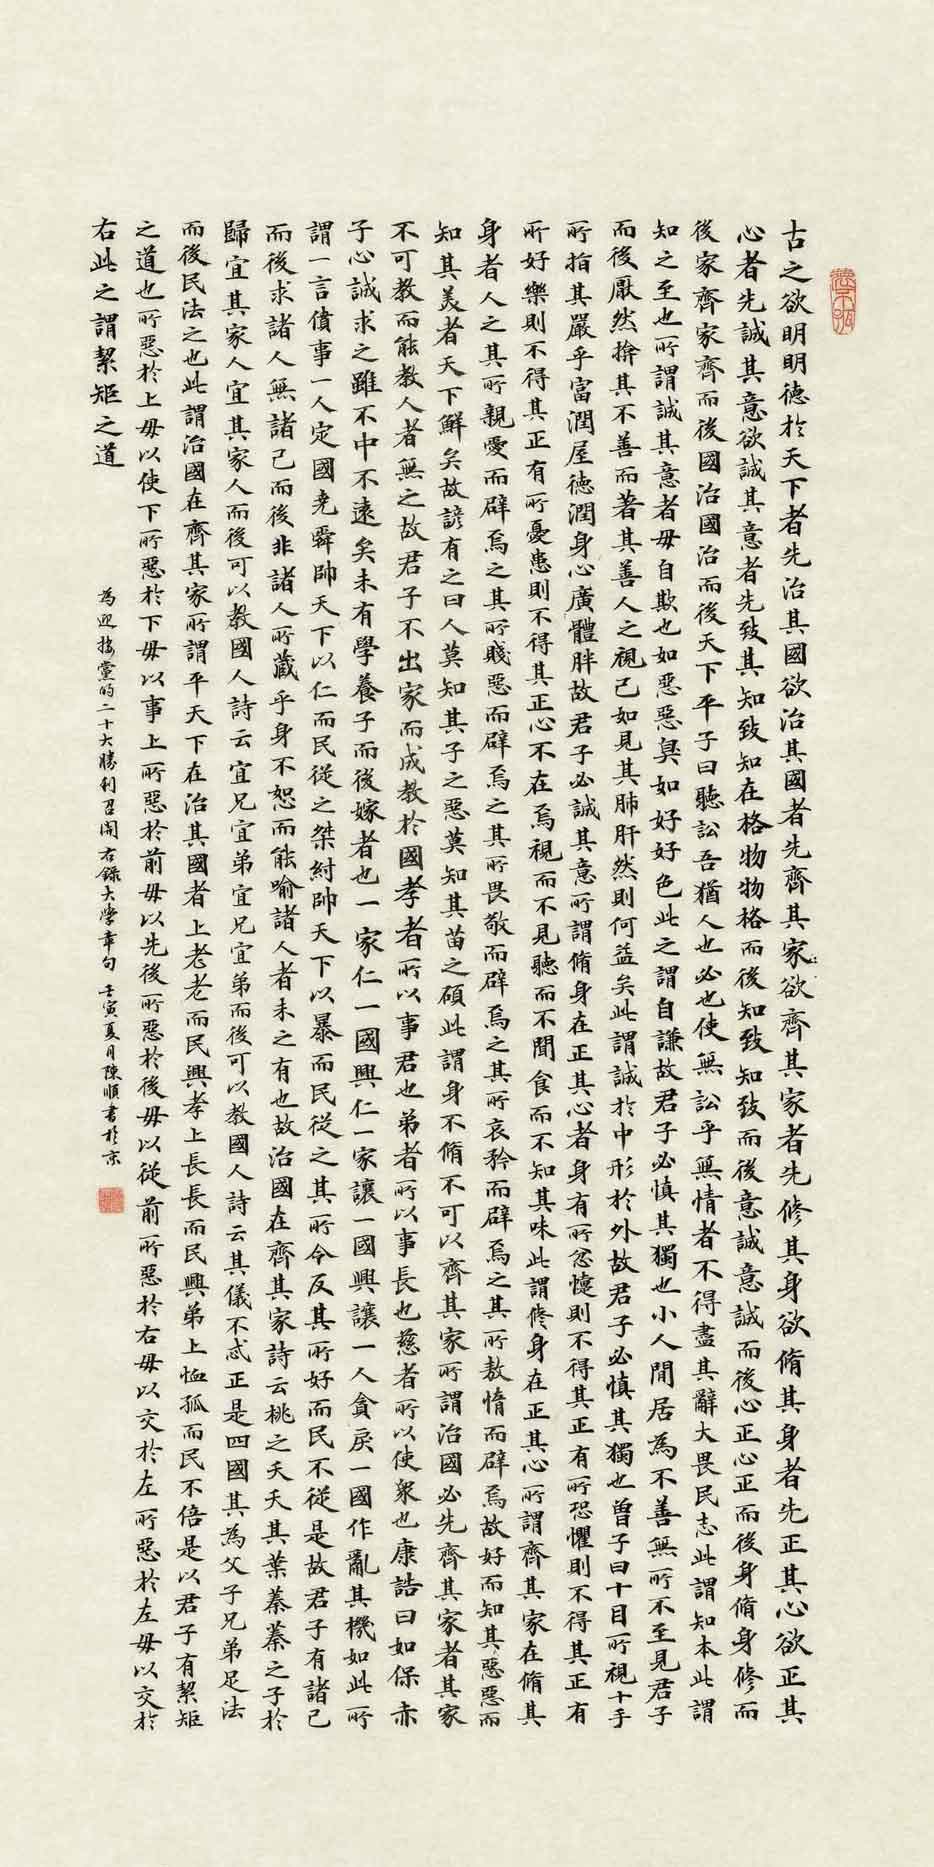 古之欲明明德於天下者先治其國欲治其國者先齊其家欲齊其家者先修其身欲脩其身者先正其心欲正其
心者先誠其意欲誠其意者先致其知致知在格物物格而後知致知致而後意誠意誠而後心正心正而後身脩身修而
後家齊家齊而後國治國治而後天下平子曰聽訟吾猶人也必也使無訟乎無情者不得盡其辭大畏民志此謂知本此謂
知之至也所謂誠其意者毋自欺也如惡惡臭如好好色此之謂自謙故君子必慎其獨也小人閒居為不善無所不至見君子
而後厭然揜其不善而著其善人之視己如見其肺肝然則何益矣此謂誠於中形於外故君子必慎其獨也曾子曰十目所視十手
所指其嚴乎富潤屋德潤身心廣體胖故君子必誠其意所謂脩身在正其心者身有所忿懥則不得其正有所恐懼則不得其正有
所好樂則不得其正有所憂患則不得其正心不在焉視而不見聽而不聞食而不知其味此謂修身在正其心所謂齊其家在脩其
身者人之其所親愛而辟焉之其所賤惡而辟焉之其所畏敬而辟焉之其所哀矜而辟焉之其所敖惰而辟焉故好而知其惡惡而
知其美者天下鮮矣故諺有之曰人莫知其子之惡莫知其苗之碩此謂身不脩不可以齊其家所謂治國必先齊其家者其家
不可教而能教人者無之故君子不出家而成教於國孝者所以事君也弟者所以事長也慈者所以使衆也康誥曰如保赤
子心誠求之雖不中不遠矣未有學養子而後嫁者也一家仁一國興仁一家讓一國興讓一人貪戾一國作亂其機如此所
謂一言僨事一人定國堯舜帥天下以仁而民從之桀紂帥天下以暴而民從之其所令反其所好而民不從是故君子有諸己
而後求諸人無諸己而後非諸人所藏乎身不恕而能喻諸人者未之有也故治國在齊其家詩云桃之夭夭其葉蓁蓁之子於
歸宜其家人宜其家人而後可以教國人詩云宜兄宜弟宜兄宜弟而後可以教國人詩云其儀不忒正是四國其為父子兄弟足法
而後民法之也此謂治國在齊其家所謂平天下在治其國者上老老而民興孝上長長而民興弟上恤孤而民不倍是以君子有絜矩
之道也所惡於上毋以使下所惡於下毋以事上所惡於前毋以先後所惡於後毋以從前所惡於右毋以交於左所惡於左毋以交於
右此之謂絜矩之道
為迎接黨的二十大勝利召開右錄大學章句 壬寅夏月陳順書於京
德不孤